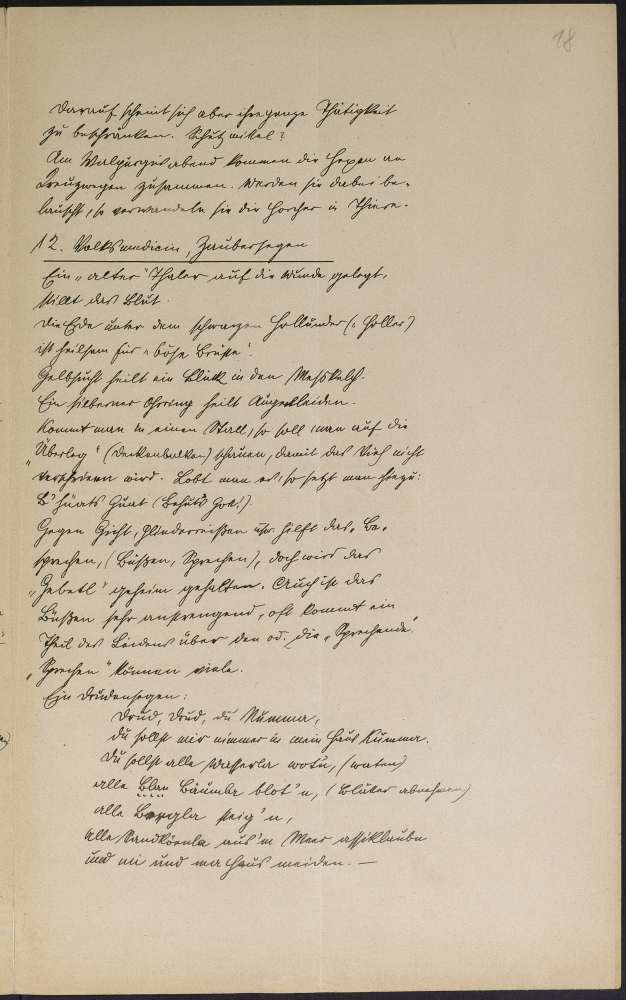 18
Darauf scheint sich aber ihre ganze Thätigkeit
zu beschränken. Schutzmittel?
Am Walpurgisabend kommen die Hexen an
Kreuzwegen zusammen. Werden sie dabei be-
lauscht, so verwandeln sie die Horcher in Thiere.
12. Volksmedicin, Zaubersegen
Ein „alter" Thaler auf die Wunde gelegt,
stillt das Blut.
Die Erde unter dem schwarzen Hollunder („Holler")
ist heilsam für „böse Brüste".
Gelbsucht heilt ein Blick in den Messkelch.
Ein silberner Ohrring heilt Augenleiden.
Kommt man in einen Stall, so soll man auf die
„Überleg" (Deckenbalken) schauen, damit das Vieh nicht
verschrieen wird. Lobt man es, so setzt man hinzu:
B'hüats Guat (Behüts Gott!).
Gegen Gicht, Gliederreißen usw. hilft das Be-
sprechen, (Büßen, Sprechen), doch wird das
„Gebetl" geheim gehalten. Auch ist das
Büßen sehr anstrengend, oft kommt ein
Theil des Leidens über den od. die „Sprechende".
„Sprechen" können viele.
Ein Drudensegen:
Drud, Drud, du Mumma,
du sollst mir nimmer in mein Haus kumma.
Du sollst alle Wasserla wot'n, (waten)
alle Blau Bäumla blot'n, (Blätter abnehmen)
alle Bergla steig'n,
alle Sandkörnla aus'm Meer assiklaubn
und mi und ma Haus meiden. —